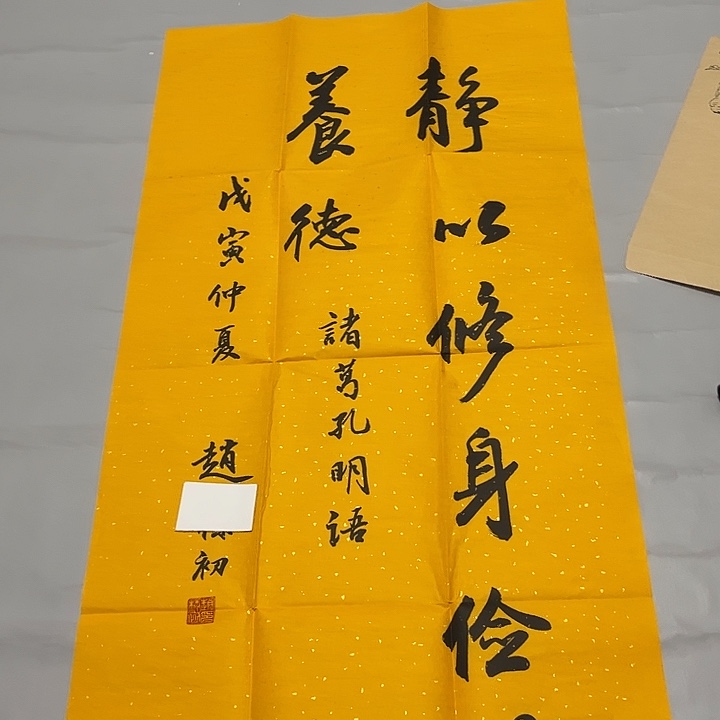 静以修身俭
養德
諸葛孔明語
戊寅仲夏
趙
初